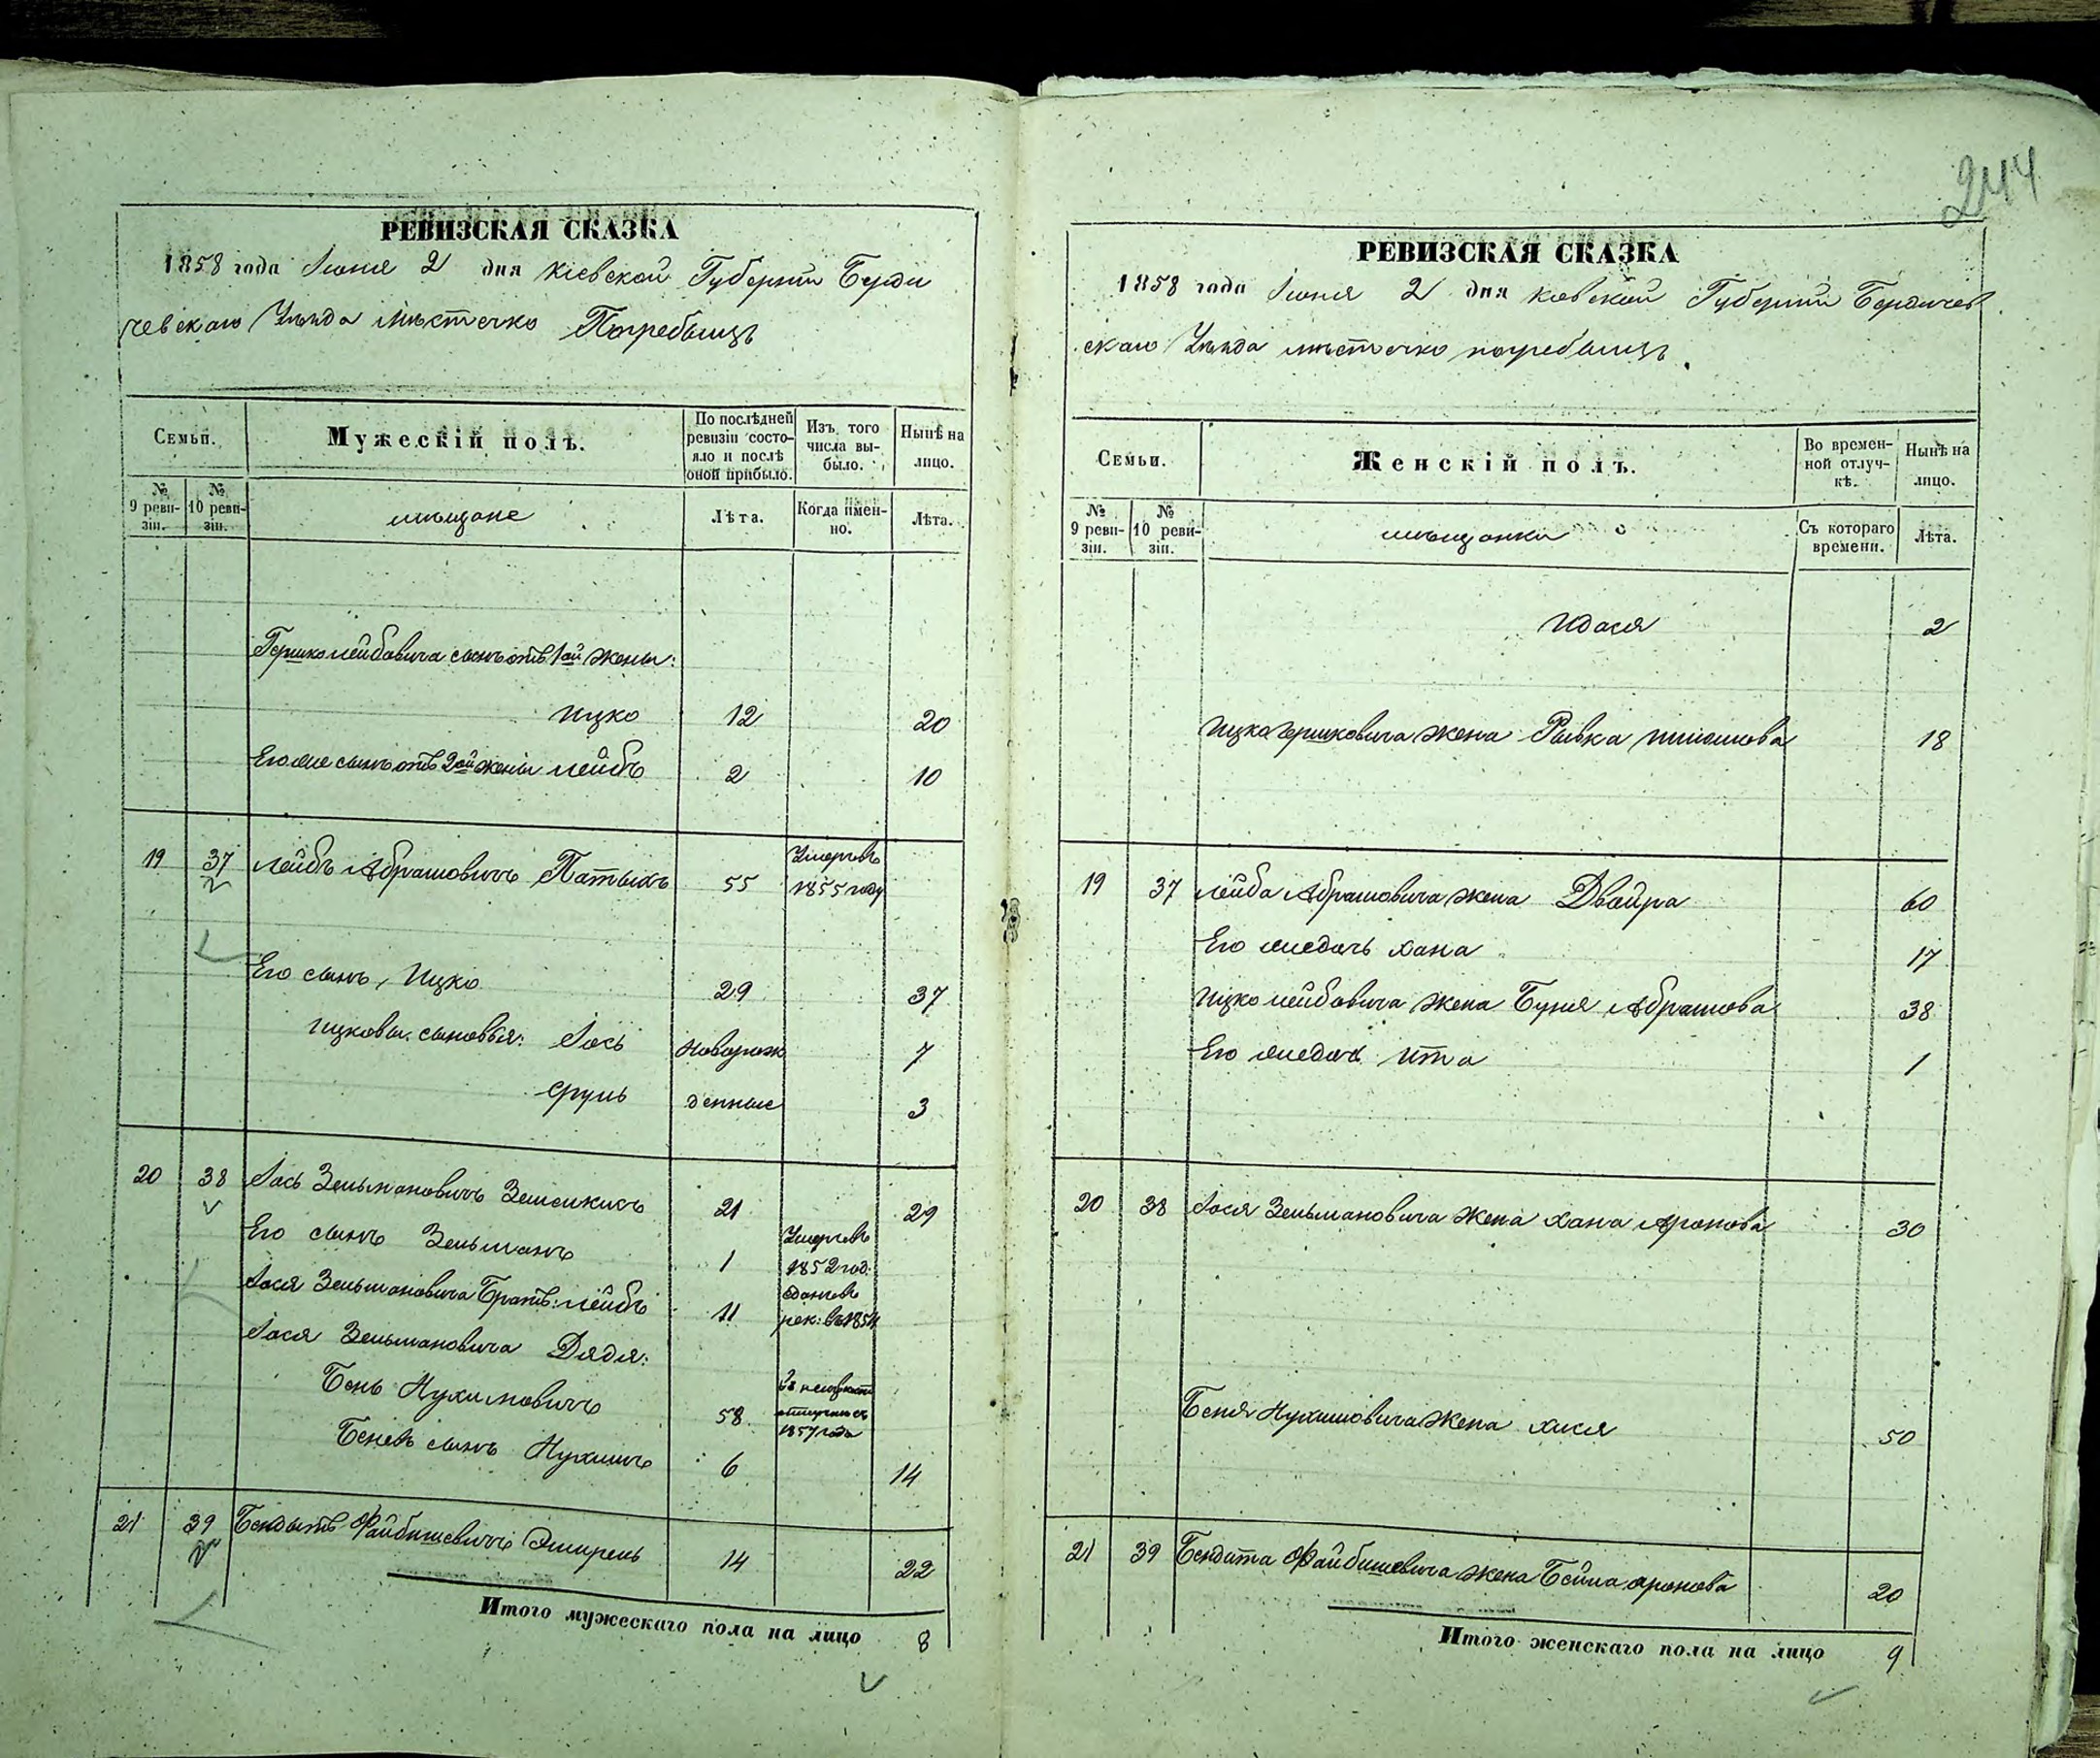 244
РЕВИЗСКАЯ СКАЗКА
1858 года Іюня 2 дня Кіевской Губерніи Берди
чевскаго Уѣзда Мѣстечко Погребыщъ
Семьи.
Мужескій полъ.
По послѣдней ревизіи состояло и послѣ оной прибыло.
Изъ того числа выбыло.
Нынѣ на лицо.
№ 9 ревизіи.
№ 10 ревизіи.
мѣщане
Лѣта.
Когда именно.
Лѣта.
Гершко Лейбовича сынъ отъ 1ой жены:
Ицко 12 20
Его же сынъ отъ 2ой жены Лейбъ 2 10
19 37 Лейбъ Абрамовичъ Патыкъ 55 Умеръ въ 1855 году
Его сынъ, Ицко 29 37
Ицковы сыновья: Іось Новорож 7
Сруль денные 3
20 38 Іось Зельмановичъ 21 29
Его сынъ Зельманъ 1 Умеръ въ 1852 год:
Іося Зельмановича Братъ: Лейбъ 11 Отданъ въ рек: въ 1854
Іося Зельмановича Дядя:
Бень Нухимовичъ 58 1857 года
Беня сынъ Нухимъ 6 14
21 39 Бендытъ Файбишевичъ 14 22
Итого мужескаго пола на лицо 8
РЕВИЗСКАЯ СКАЗКА
1858 года Іюня 2 дня Кіевской Губерніи Бердичев
скаго Уѣзда мѣстечко Погребыщъ.
Семьи.
Женскій полъ.
Во временной отлучкѣ.
Нынѣ на лицо.
№ 9 ревизіи.
№ 10 ревизіи.
мѣщанки
Съ котораго времени.
Лѣта.
Идася 2
Ицка Гершковича жена Рывка 18
19 37 Лейба Абрамовича жена Двойра 60
Его же дочь Хана 17
Ицко Лейбовича жена Буня Абрамова 38
Его же дочь Ита 1
20 38 Іося Зельмановича жена Хана Аронова 30
Беня Нухимовича жена Хися 50
21 39 Бендита Файбишевича жена Бейла Аронова 20
Итого женскаго пола на лицо 9